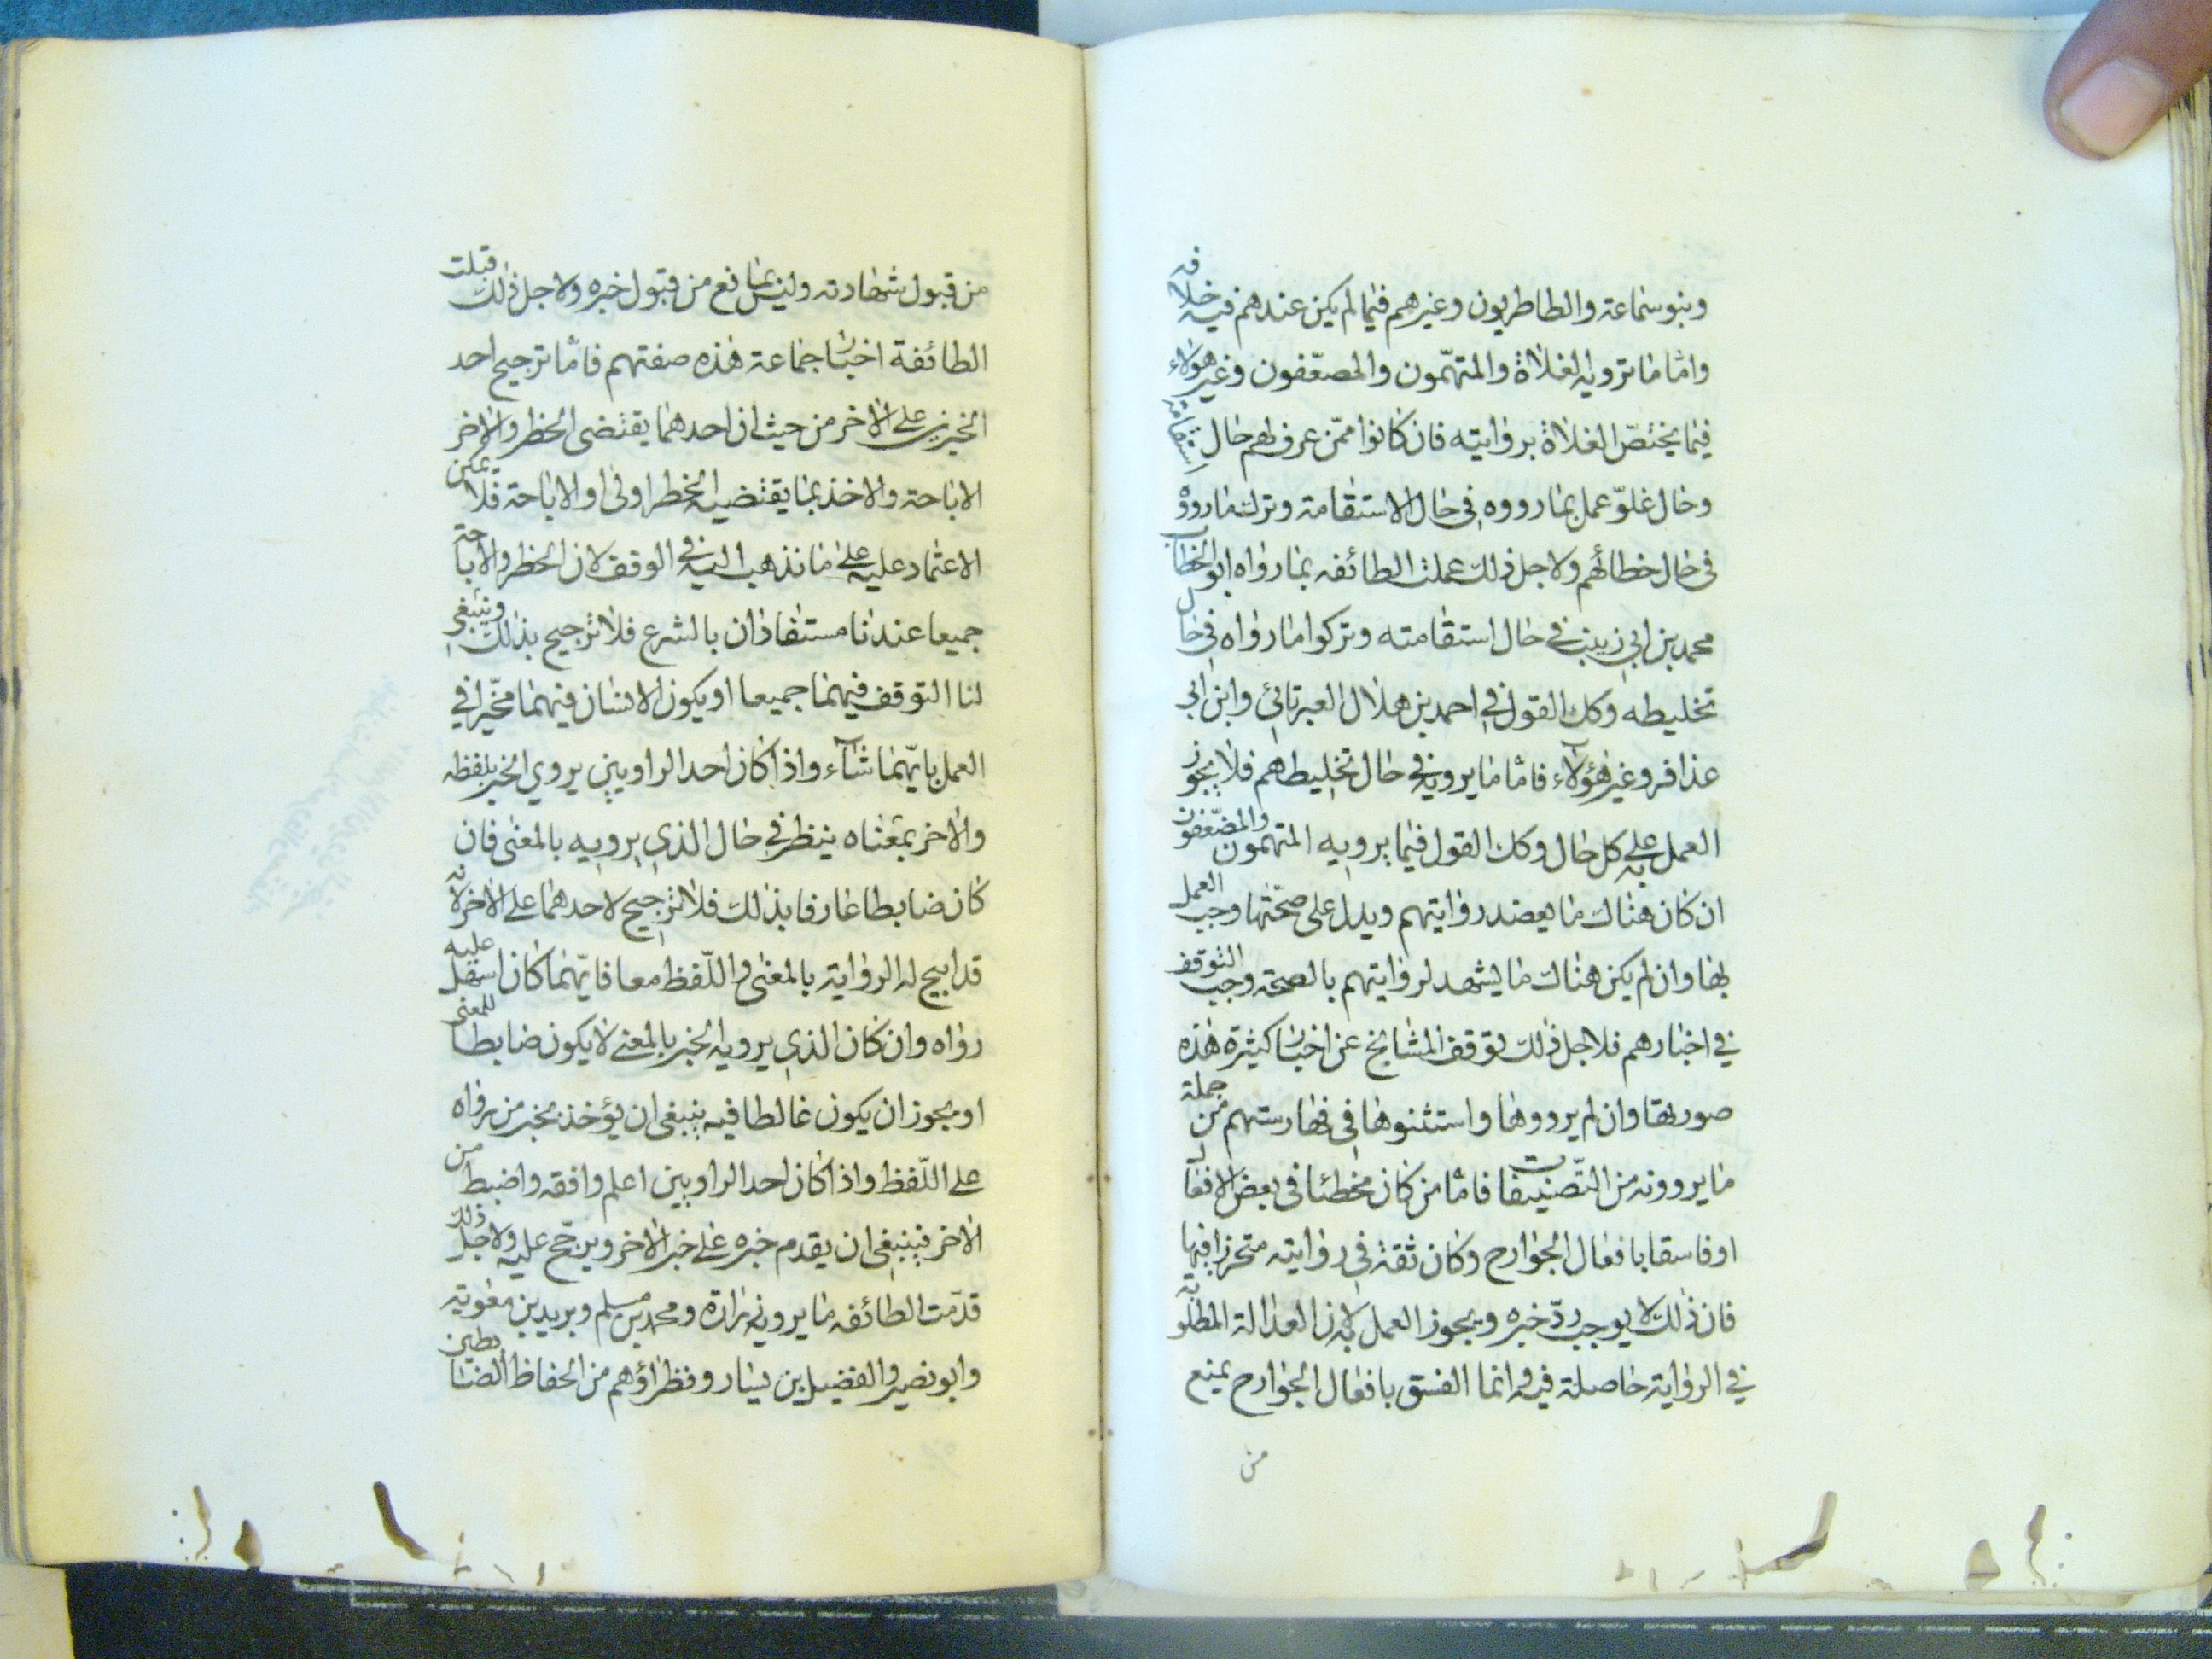 وبنو سماعة والطاطريون وغيرهم فيما لم يكن عندهم فيه خلافه
واما ما ترويه الغلاة والمتهمون والمصعّفون وغير هولاء
فيما يختصّ الغلاة بروايته فان كانوا ممّن عرف لهم حال استقامة
وحال غلوّ عمل بما رووه في حال الاستقامة وترك ما رووه
في حال خطائهم ولاجل ذلك عملت الطائفه بما رواه ابو الخطاب
محمد بن ابي زينب في حال استقامته وتركوا ما رواه في حال
تخليطه وكك القول في احمد بن هلال العبرتائي وابن ابي
عذافر وغير هؤلاء فامّا ما يرويه في حال تخليطهم فلا يجوز
العمل به على كل حال وكك القول فيما يرويه المتهمون والمضعّفون
ان كان هناك ما يعضد روايتهم ويدل على صحّتها وجب العمل
بها وان لم يكن هناك ما يشهد لروايتهم بالصحة وجب التوقف
في اخبارهم فلاجل ذلك توقف المشايخ عن اخبار كثيرة هذه
صورتها وان لم يرووها واستثنوها في فهارستهم من جملة
ما يروونه من التّصنيفات فامّا من كان مخطئا في بعض الافعال
او فاسقا بافعال الجوارح وكان ثقة في روايته متحرزا فيها
فان ذلك لا يوجب ردّ خبره ويجوز العمل به لان العدالة المطلوبة
في الرواية حاصلة فيه وانما الفسق بافعال الجوارح يمنع
من
من قبول شهادته وليس بمانع من قبول خبره ولاجل ذلك قبلت
الطائفة اخبار جماعة هذه صفتهم فامّا ترجيح احد
الخبرين على الاخر من حيث ان احدهما يقتضى الحظر والاخر
الاباحة والاخذ بما يقتضيه الحظر اولى او الاباحة فلا يمكن
الاعتماد عليه على ما نذهب اليه في الوقف لان الحظر والاباحة
جميعا عندنا مستفادان بالشرع فلا ترجيح بذلك وينبغي
لنا التوقف فيهما جميعا او يكون الانسان فيهما مخيّرا في
العمل بايّهما شاء واذا كان احد الراويين يروي الخبر بلفظه
والاخر بمعناه ينظر في حال الذي يرويه بالمعنى فان
كان ضابطا عارفا بذلك فلا ترجيح لاحدهما على الاخر لانه
قد ابيح له الرواية بالمعنى واللّفظ معا فايّهما كان اسهل عليه
رواه وان كان الذي يرويه الخبر بالمعنى لا يكون ضابطا للمعنى
او يجوز ان يكون غالطا فيه ينبغي ان يؤخذ بخبر من رواه
على اللّفظ واذا كان احد الراويين اعلم وافقه واضبط من
الاخر فينبغي ان يقدم خبره على خبر الاخر ويرجّح عليه ولاجل ذلك
قدّمت الطائفه ما يرويه زرارة ومحمد بن مسلم وبريد بن معوية
وابو بصير والفضيل بن يسار ونظراؤهم من الحفاظ الضابطين